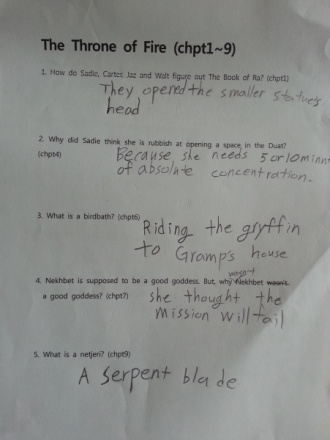 The Throne of Fire (chpt1~9)
1. How do Sadie, Carter, Jaz and Walt figure out The Book of Ra? (chpt1)
They opened the smaller statue's
head
2. Why did Sadie think she is rubbish at opening a space in the Duat?
(chpt4)
Because she needs 5 or 10 minnt
of absolute concentration.
3. What is a birdbath? (chpt6)
Riding the gryffin
to Gramp's house
4. Nekhbet is supposed to be a good goddess. But, why wasn't Nekhbet wasn't
a good goddess? (chpt7)
she thought the
mission will fail
5. What is a netjeri? (chpt9)
A serpent blade